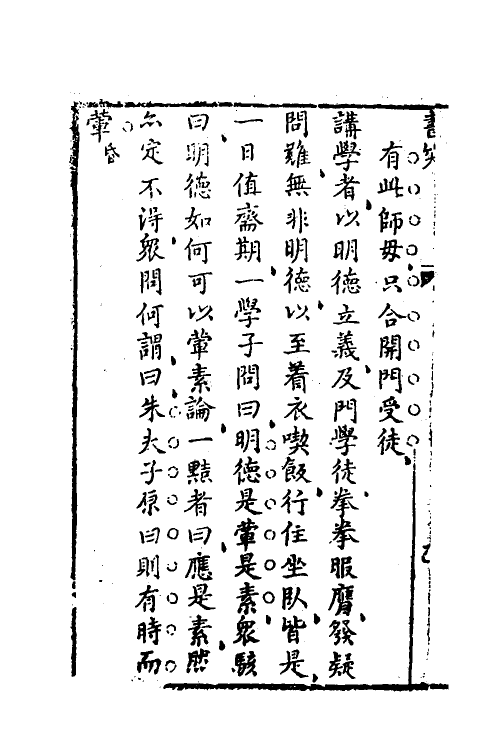 有此師母只合開門受徒
講學者以明德立義及門學徒拳拳服膺發疑
問難無非明德以至著衣喫飯行住坐臥皆是
一日值齋期一學子問曰明德是葷是素眾駭
曰明德如何可以葷素論一黠者曰應是素然
亦定不得眾問何謂曰朱夫子原曰則有時而
葷昏